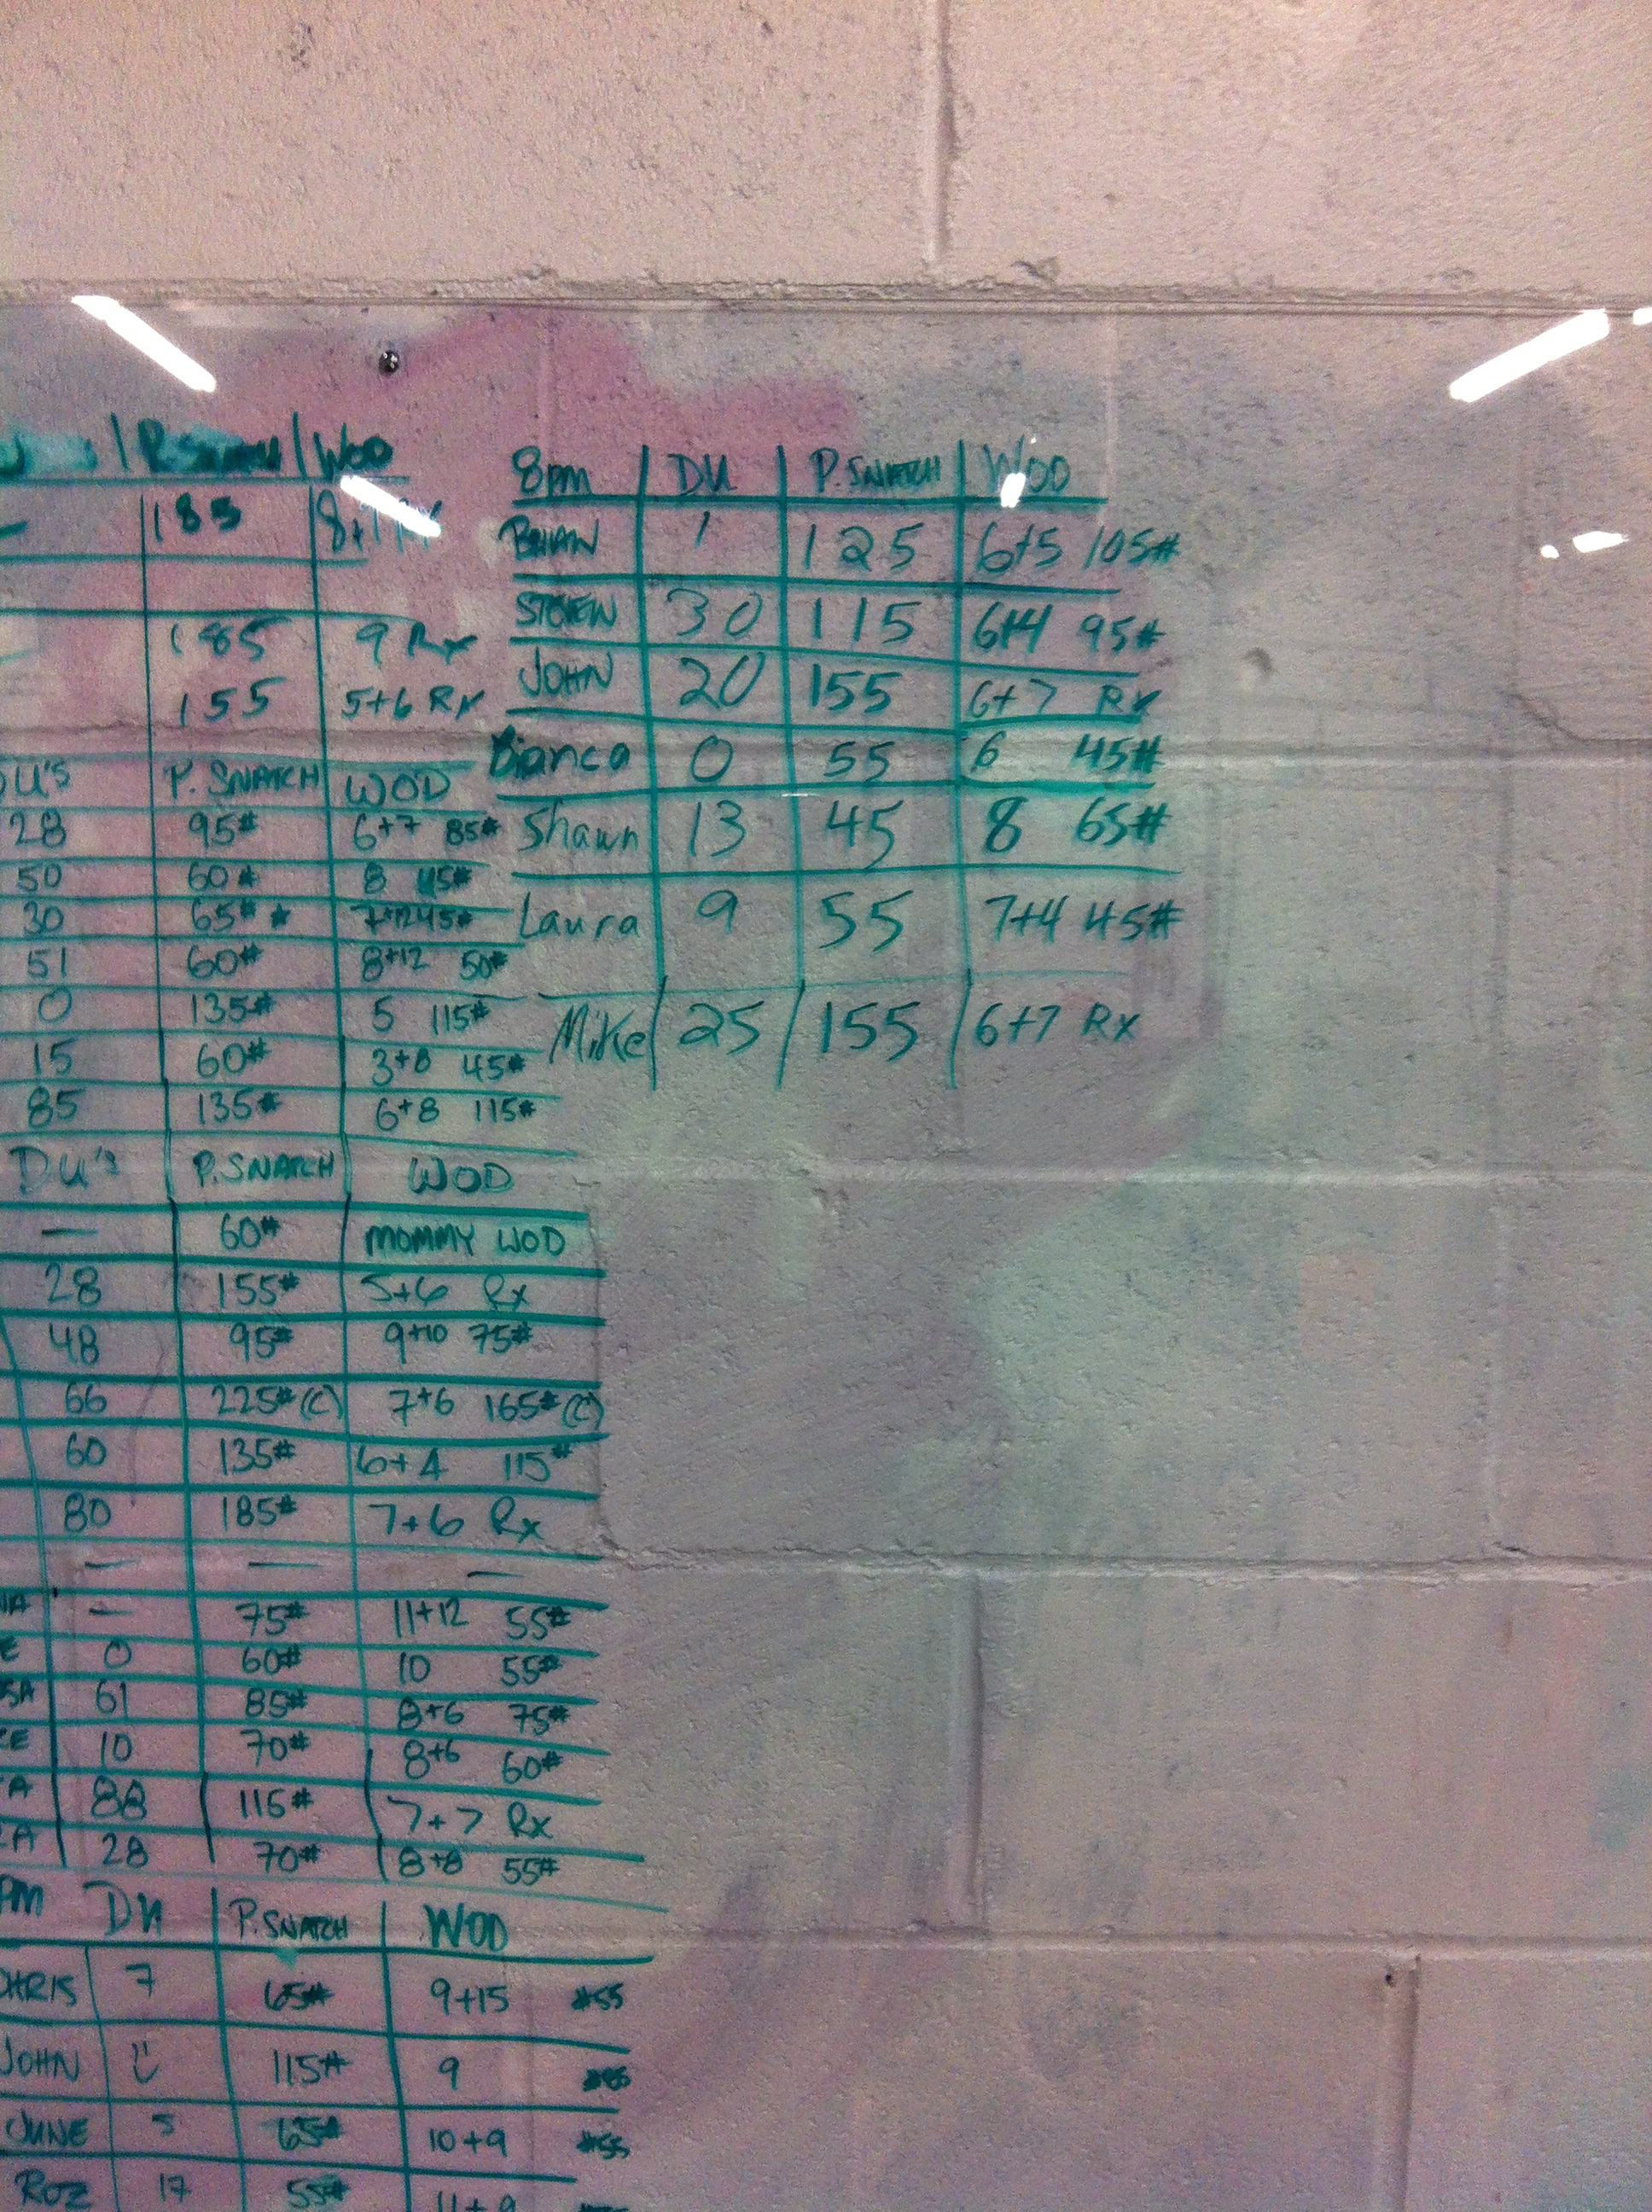 P. SNATCH | WOD
185
185 9 Rx
155 5+6 RX
DU'S P. SNATCH WOD
28 95# 6+7 85#
50 60# 8 45#
30 65# * 7+12 45#
51 60# 8+12 50#
0 135# 5 115#
15 60# 3+8 45#
85 135# 6+8 115#
DU'S P. SNATCH WOD
— 60# MOMMY WOD
28 155# 5+6 Rx
48 95# 9+10 75#
66 225# (C) 7+6 165# (C)
60 135# 6+4 115#
80 185# 7+6 Rx
— — —
— 75# 11+12 55#
0 60# 10 55#
61 85# 8+6 75#
10 70# 8+6 60#
88 115# 7+7 Rx
28 70# 8+8 55#
PM DU | P. SNATCH | WOD
CHRIS 7 65# 9+15 #55
JOHN 115# 9
JUNE 5 65# 10+9 #55
ROZ 17 55# 11+9
8pm | DU | P. SNATCH | WOD
BRIAN 1 125 6+5 105#
STEVEN 30 115 6+4 95#
JOHN 20 155 6+7 Rx
Bianca 0 55 6 45#
Shawn 13 45 8 65#
Laura 9 55 7+4 45#
Mike 25 155 6+7 Rx